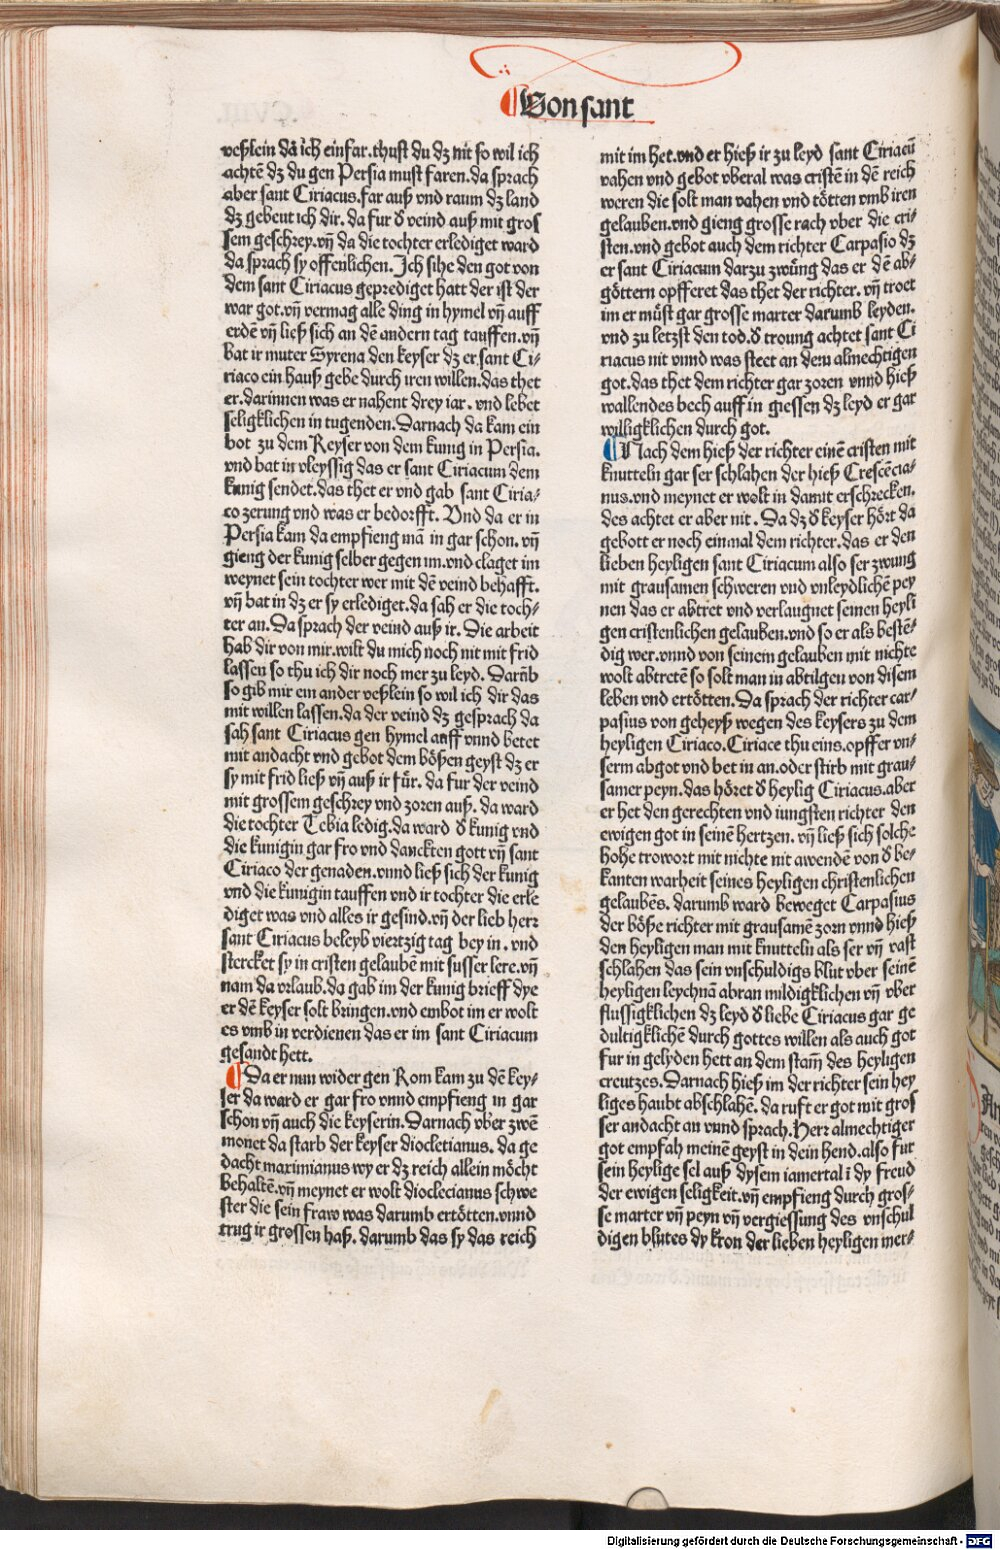 Von sant
veßlein da ich einfar. thust du dz nit so wil ich
achtē dz du gen Persia must faren. da sprach
aber sant Ciriacus. far auß vnd raum dz land
dz gebeut ich dir. da fur d̕ veind auß mit gros
sem geschrey. vn̄ da die tochter erlediget ward
da sprach sy offenlichen. Ich sihe den got von
dem sant Ciriacus geprediget hatt der ist der
war got. vn̄ vermag alle ding in hymel vn̄ auff
erdē vn̄ ließ sich an dē andern tag tauffen. vn̄
bat ir muter Syrena den keyser dz er sant Ci⸗
riaco ein hauß gebe durch iren willen. das thet
er. darinnen was er nahent drey iar. vnd lebet
seligklichen in tugenden. Darnach da kam ein
bot zu dem Keyser von dem kunig in Persia.
vnd bat in vleyssig das er sant Ciriacum dem
kunig sendet. das thet er vnd gab sant Ciria⸗
co zerung vnd was er bedorfft. Vnd da er in
Persia kam da empfieng mā in gar schon. vn̄
gieng der kunig selber gegen im. vnd claget im
weynet sein tochter wer mit dē veind behafft.
vn̄ bat in dz er sy erlediget. da sah er die toch⸗
ter an. Da sprach der veind auß ir. Die arbeit
hab dir von mir. wilt du mich noch nit mit frid
lassen so thu ich dir noch mer zu leyd. Darūb
so gib mir ein ander veßlein so wil ich dir das
mit willen lassen. da der veind dz gesprach da
sah sant Ciriacus gen hymel auff vnnd betet
mit andacht vnd gebot dem bößen geyst dz er
sy mit frid ließ vn̄ auß ir für. da fur der veind
mit grossem geschrey vnd zoren auß. da ward
die tochter Tebia ledig. da ward d̕ kunig vnd
die kunigin gar fro vnd danckten gott vn̄ sant
Ciriaco der genaden. vnnd ließ sich der kunig
vnd die kunigin tauffen vnd ir tochter die erle
diget was vnd alles ir gesind. vn̄ der lieb herr
sant Ciriacus beleyb viertzig tag bey in. vnd
stercket sy in cristen gelaubē mit susser lere. vn̄
nam da vrlaub. da gab im der kunig brieff dye
er dē keyser solt bringen. vnd embot im er wolt
es vmb in verdienen das er im sant Ciriacum
gesandt hett.
Da er nun wider gen Rom kam zu dē key⸗
ser da ward er gar fro vnnd empfieng in gar
schon vn̄ auch die keyserin. Darnach vber zwē
monet da starb der keyser diocletianus. da ge
dacht maximianus wy er dz reich allein möcht
behaltē. vn̄ meynet er wolt dioclecianus schwe
ster die sein fraw was darumb ertötten. vnnd
trug ir grossen haß. darumb das sy das reich
mit im het. vnd er hieß ir zu leyd sant Ciriacū
vahen vnd gebot vberal was cristē in dē reich
weren die solt man vahen vnd tötten vmb iren
gelauben. vnd gieng grosse rach vber die cri⸗
sten. vnd gebot auch dem richter Carpasio dz
er sant Ciriacum darzu zwüng das er dē ab⸗
göttern opfferet das thet der richter. vn̄ troet
im er müst gar grosse marter darumb leyden.
vnd zu letzst den tod. d̕ troung achtet sant Ci
riacus nit vnnd was steet an dem almechtigen
got. das thet dem richter gar zoren vnnd hieß
wallendes bech auff in giessen dz leyd er gar
willigklichen durch got.
Nach dem hieß der richter einē cristen mit
knutteln gar ser schlahen der hieß Crescēcia⸗
nus. vnd meynet er wolt in damit erschrecken.
des achtet er aber nit. Da dz d̕ keyser hört da
gebott er noch einmal dem richter. das er den
lieben heyligen sant Ciriacum also ser zwung
mit grausamen schweren vnd vnleydlichē pey
nen das er abtret vnd verlaugnet seinen heyli
gen cristenlichen gelauben. vnd so er als bestē⸗
dig wer. vnnd von seinem gelauben mit nichte
wolt abtretē so solt man in abtilgen von disem
leben vnd ertötten. Da sprach der richter car⸗
pasius von geheyß wegen des keysers zu dem
heyligen Ciriaco. Ciriace thu eins. opffer vn⸗
serm abgot vnd bet in an. oder stirb mit grau⸗
samer peyn. das höret d̕ heylig Ciriacus. aber
er het den gerechten vnd iungsten richter den
ewigen got in seinē hertzen. vn̄ ließ sich solche
hohe trowort mit nichte nit awendē von d̕ be⸗
kanten warheit seines heyligen christenlichen
gelaubēs. darumb ward beweget Carpasius
der böße richter mit grausamē zorn vnnd hieß
den heyligen man mit knutteln als ser vn̄ vast
schlahen das sein vnschuldigs blut vber seinē
heyligen leychnā abran mildigklichen vn̄ vber
flussigklichen dz leyd d̕ liebe Ciriacus gar ge
dultigklichē durch gottes willen als auch got
fur in gelyden hett an dem stam̄ des heyligen
creutzes. Darnach hieß im der richter sein hey
liges haubt abschlahē. da ruft er got mit gros
ser andacht an vnnd sprach. Herr almechtiger
got empfah meinē geyst in dein hend. also fur
sein heylige sel auß dysem iamertal ī dy freud
der ewigen seligkeit. vn̄ empfieng durch gros⸗
se marter vn̄ peyn vn̄ vergiessung des vnschul
digen blutes dy kron der lieben heyligen mer⸗
Digitalisierung gefördert durch die Deutsche Forschungsgemeinschaft - DFG